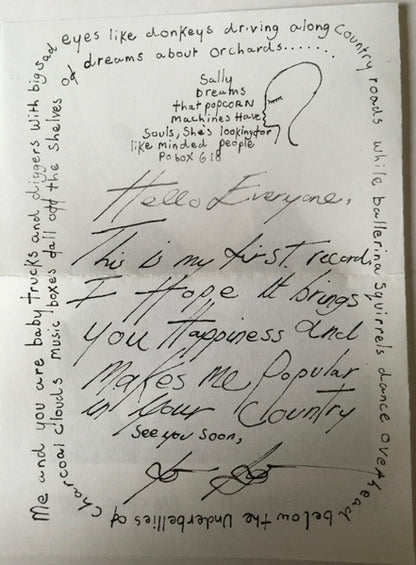 Me and you are baby trucks and diggers with big sad
eyes like donkeys driving along Country
roads while ballerina squirrels dance overhead
below the Underbellies of
Charcoal clouds music boxes fall off the shelves
of dreams about orchards......
Sally
Dreams
that popcorn
machines Have
Souls, She's looking for
like minded people
Po box 618
Hello Everyone,
This is my first record
I Hope It brings
you Happiness and
Makes me Popular
in your Country
See you Soon,